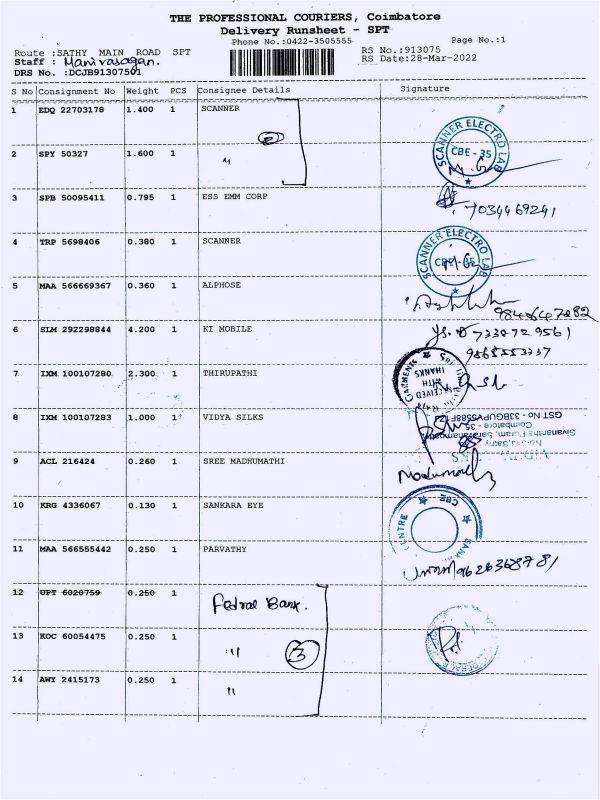 THE PROFESSIONAL COURIERS, Coimbatore
Delivery Runsheet - SPT
Phone No.:0422-3505555 Page No.:1
Route :SATHY MAIN ROAD SPT RS No.:913075
Staff : Manivasagan. RS Date:28-Mar-2022
DRS No. :DCJB91307501
S No Consignment No Weight PCS Consignee Details Signature
1 EDQ 22703178 1.400 1 SCANNER
2 SPY 50327 1.600 1 "
SCANNER ELECTRO LAB
CBE - 35
3 SPB 50095411 0.795 1 ESS EMM CORP
7034469241
4 TRP 5698406 0.380 1 SCANNER
SCANNER ELECTRO LAB
CBE-35
5 MAA 566669367 0.360 1 ALPHOSE
9846647282
6 SLM 292298844 4.200 1 KI MOBILE
7338729561
9865553337
7 IXM 100107280 2.300 1 THIRUPATHI
GARMENTS
RECEIVED
WITH
THANKS
8 IXM 100107283 1.000 1 VIDYA SILKS
GST No - 33BGUPV5588F
Coimbatore - 35
9 ACL 216424 0.260 1 SREE MADHUMATHI
10 KRG 4336067 0.130 1 SANKARA EYE
CBE
CENTRE
11 MAA 566555442 0.250 1 PARVATHY
9626368781
12 UPT 6020759 0.250 1 Fedral Bank.
13 KOC 60054475 0.250 1 " 3
14 AWY 2415173 0.250 1 "